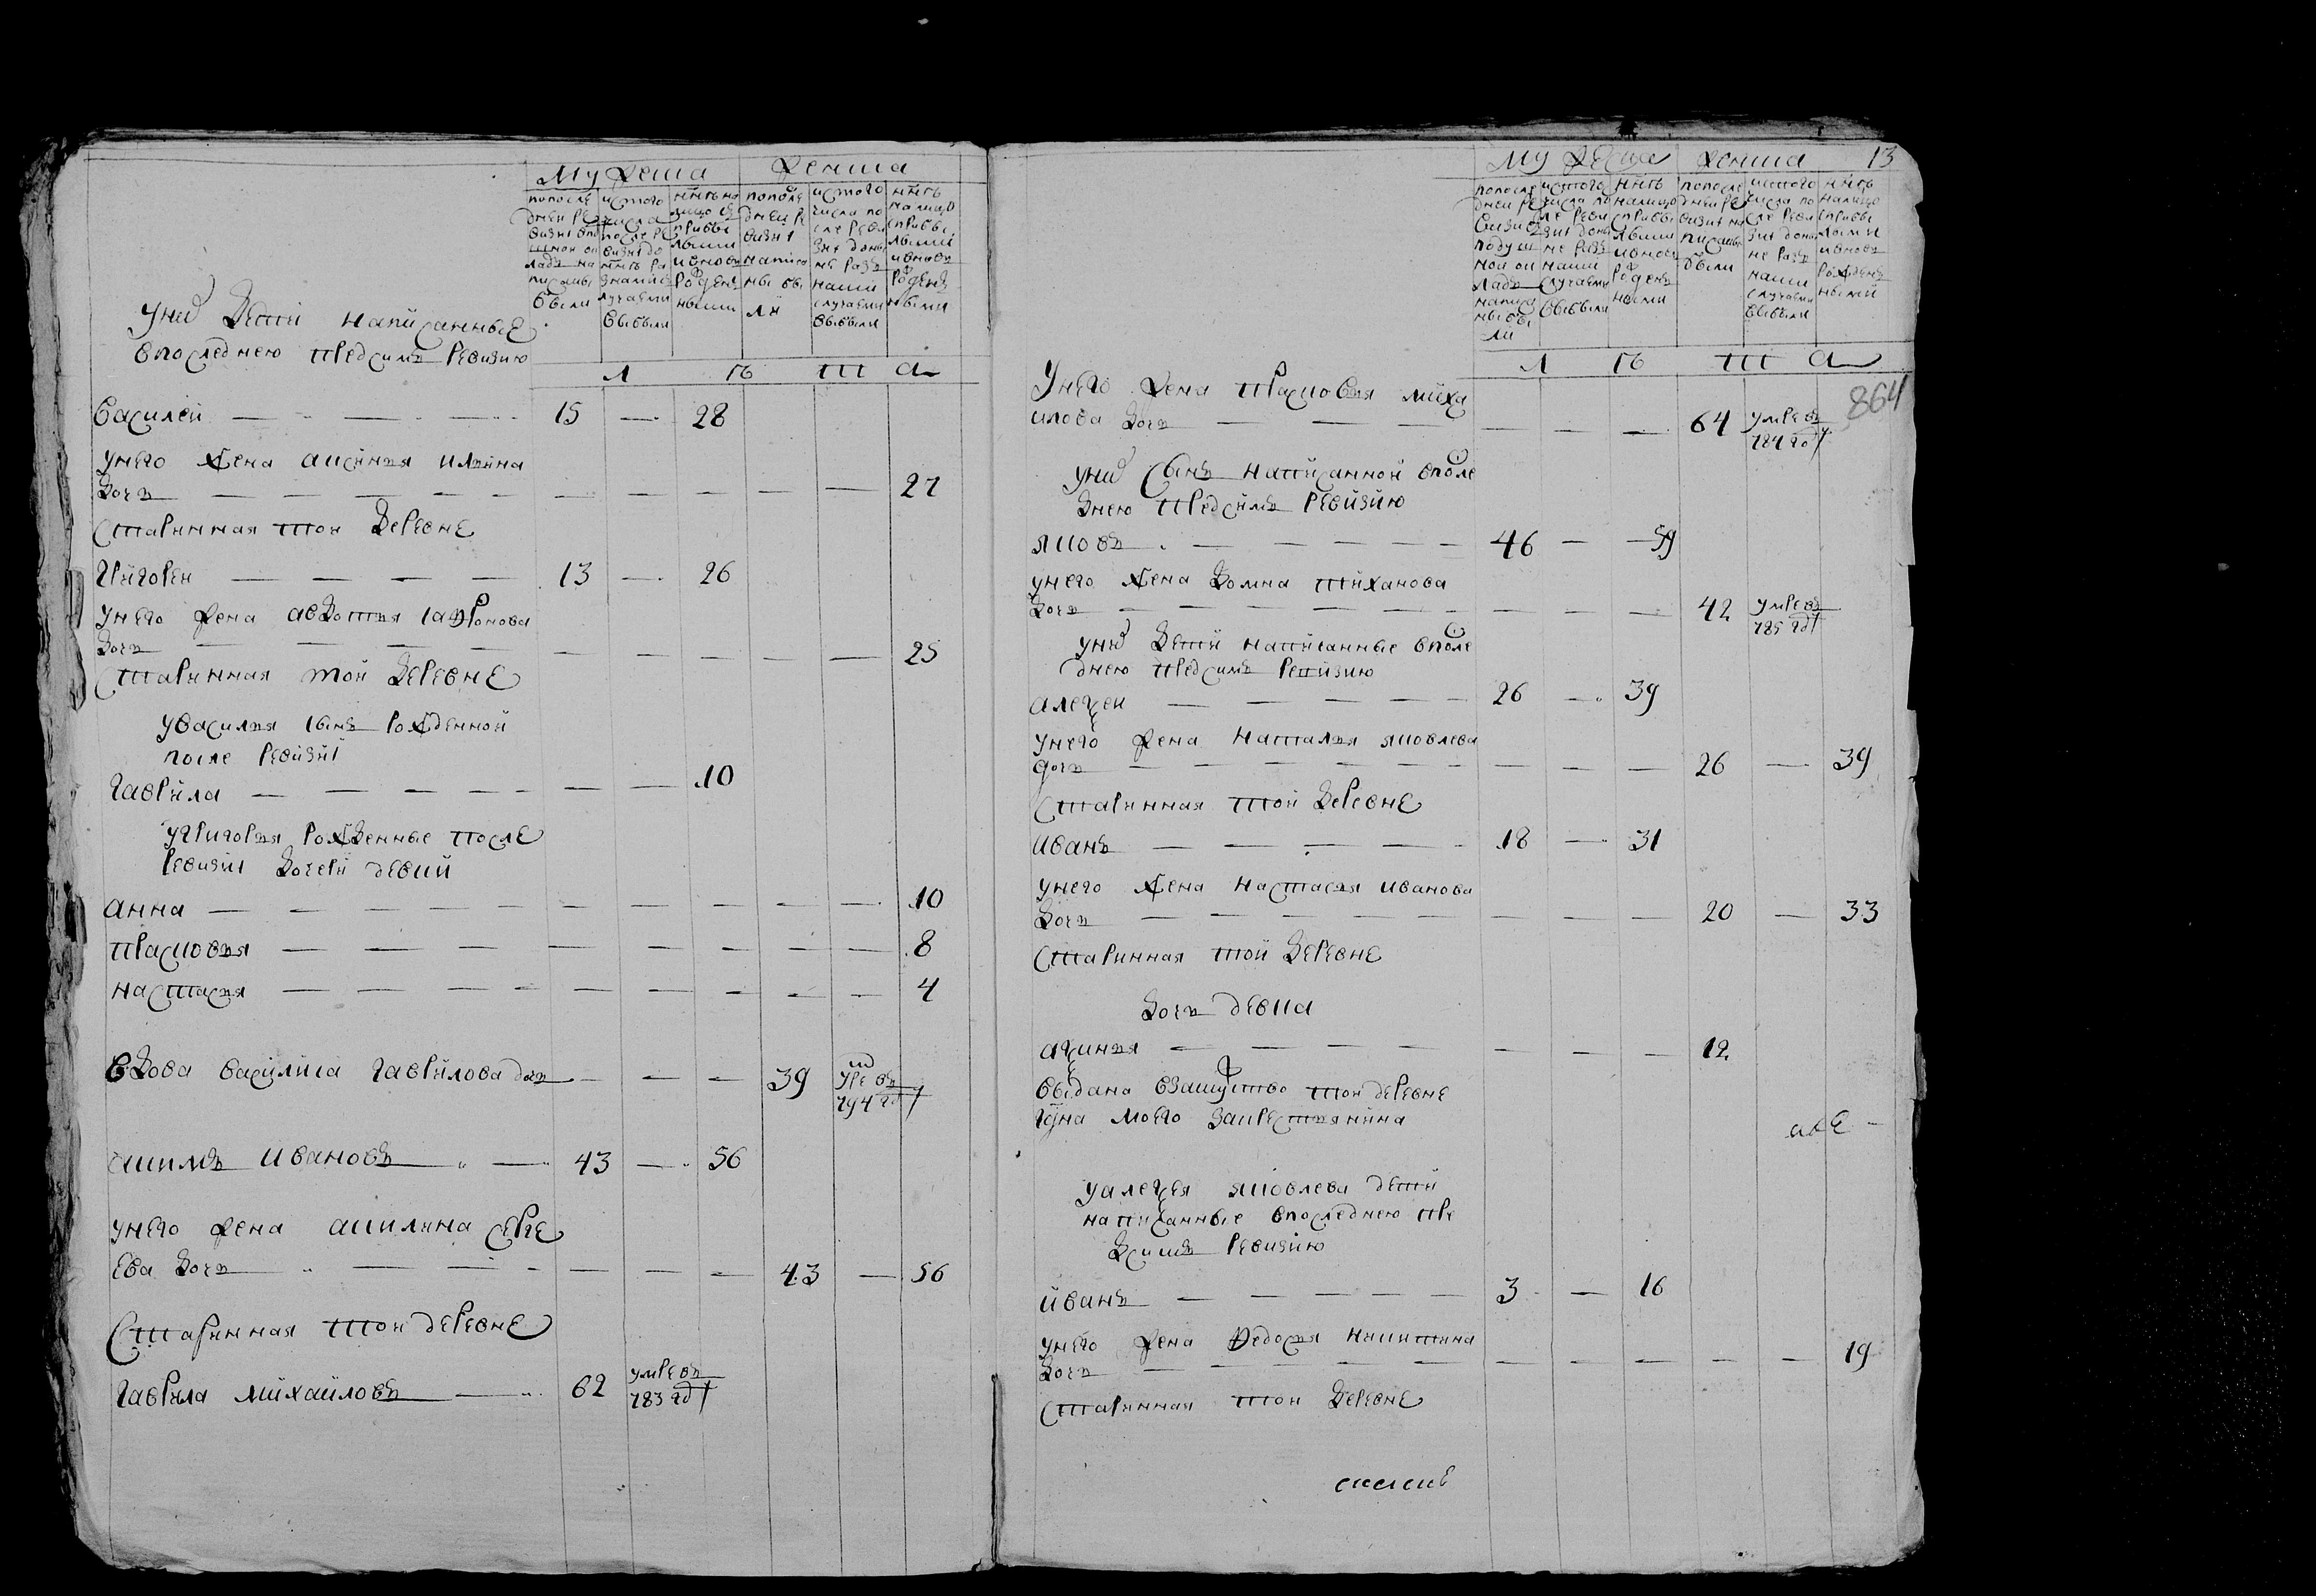 Мужеска
Женска
попосле
дней ре
визиі впо
душной ок
ладъ на
писаны
были
ис того
числа
после ре
визиі до
ннѣ ра
зными
случаеми
выбыли
ннѣ на
лицо съ
прибы
лыми
и вновь
рожден
ными
попосле
дней ре
визиі
написа
ны бы
ли
ис того
числа по
сле реви
зиі донн
не разн
ными
случаеми
выбыли
ннѣ
налицо
с прибы
лыми
и вновь
рожден
ными
Л Ѣ Т А
У них дети написанные
впоследнею пред сим ревизию
Василей 15 28
У него жена Аксинья Ильина
дочь 27
старинная той деревне
Григорей 13 26
У него жена Авдотья Сафронова
дочь 25
старинная той деревне
У Василья сын рожденной
после ревизиі
Гаврила 10
У Григорья рожденные после
ревизиі дочери девки
Анна 10
Прасковья 8
Настасья 4
Вдова Василиса Гаврилова дочь 39 умре въ
794 год
Аким Иванов 43 56
У него жена Акилина Серге
ева дочь 43 56
старинная той деревне
Гаврила Михайлов 62 умре въ
783 год
13
Мужеска
Женска
попосле
дней ре
визиі
подуш
ной ок
ладъ
написа
ны бы
ли
ис того
числа по
сле реви
зиі донн
не разн
ными
случаеми
выбыли
ннѣ
налицо
с прибы
лыми
и вновь
рожден
ными
попосле
дней ре
визиі на
писаны
были
ис того
числа по
сле реви
зиі донн
не разн
ными
случаеми
выбыли
ннѣ
налицо
с прибы
лыми
и вновь
рожден
ными
Л Ѣ Т А
864
У него жена Прасковья Миха
илова дочь 64 умре въ
784 году
У них сын написанной впосле
днею пред сим ревизию
Яков 46 59
У него жена Домна Тиханова
дочь 42 умре въ
785 год
У них дети написанные впосле
днею пред сим ревизию
Алексей 26 39
У него жена Наталья Яковлева
дочь 26 39
старинная той деревне
Иван 18 31
У него жена Настасья Иванова
дочь 20 33
старинная той деревне
дочь девка
Аксинья 12
выдана взамужство той деревне
моего за крестьянина
У Алексея Яковлева дети
написанные впоследнею пре
д сим ревизию
Иван 3 16
У него жена Федосья Никитина
дочь 19
старинная той деревне